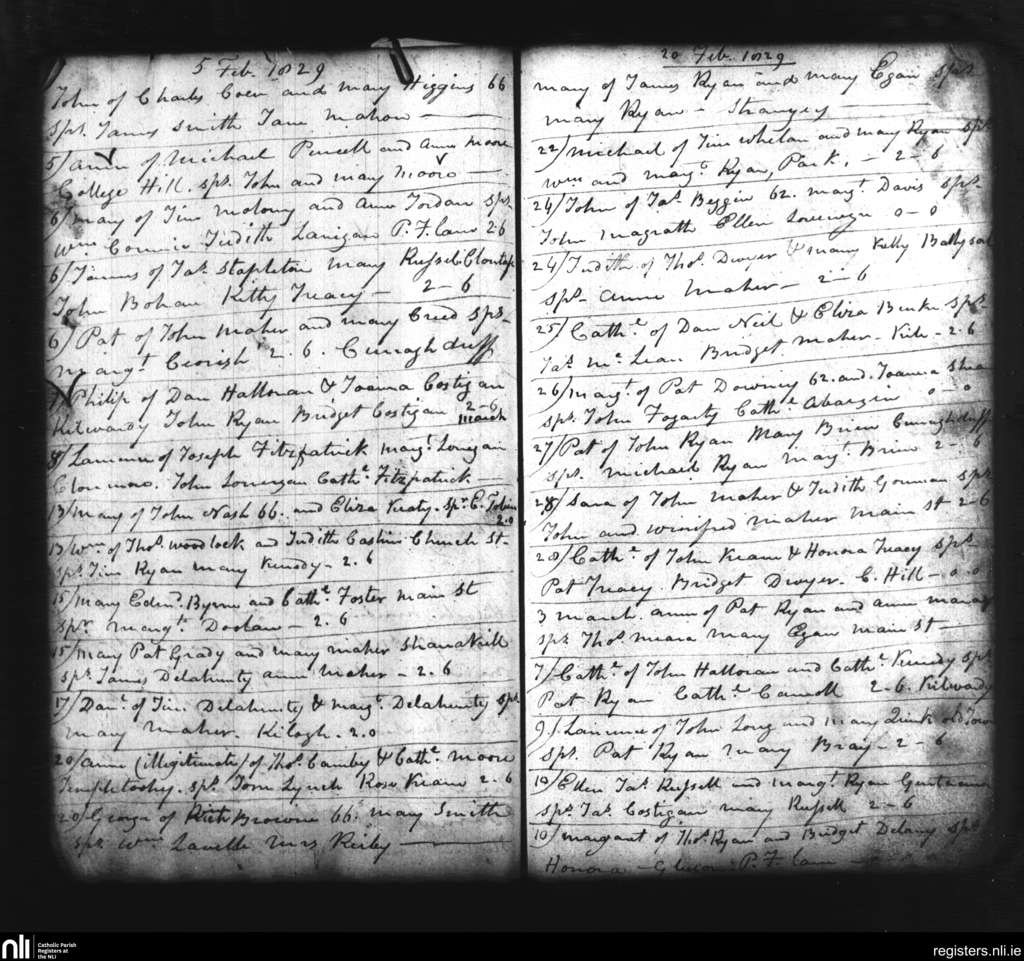 5 Feb. 1829
John of Charles Coen and Mary Higgins 66
sps. James Smith Jane Mahon
5/ Ann of Michael Purcell and Anne Moore
College Hill. sps. John and Mary Moore
6/ Mary of Tim Molony and Ann Jordan sps.
Wm Judith Lanigan P. F. Lane 2-6
6/ James of Jas. Stapleton Mary Russel
John Bohan Kitty Treacy - 2-6
6/ Pat of John Maher and Mary Creed sps-
Margt. 2.6. Curraghduff
Philip of Dan Halloran & Joanna Costigan
Kilwardy John Ryan Bridget Costigan 2-6
March
8/ Laurence of Joseph Fitzpatrick Margt. Lonrgan
John Lonergan Cathe. Fitzpatrick
13/ Mary of John Nash 66. and Eliza sps. E. Tobin
2.0
13/ Wm. of Thos. Woodlock and Judith Church St-
sps. Tim Ryan Mary Kenedy - 2.6
15/ Mary Edmd. Byrne and Cathe. Foster Main St
sps. Margt. Doolan - 2.6
15/ Mary Pat Grady and Mary Maher Shanakill
sps. James Delahunty Anne Maher - 2.6
17/ Danl. of Tim. Delahunty & Margt. Delahunty sps.
Mary Maher. Kilogh. 2.0
20/ Anne (illegitimate) of Thos. & Cathe. Moore
Templetoohy. sps. Tom Lynch Rose Keane 2.6
20/ George of Browne 66. Mary Smith
sps. Wm Lavelle Mrs Kirby
20 Feb. 1829
Mary of James Ryan and Mary Egan sps.
Mary Ryan - Strangers
22/ Michael of Tim Whelan and Mary Ryan sps.
Wm and Margt. Ryan, Park, - 2-6
24/ John of Jas. Beggin 62. Margt. Davis sps.
John Magrath Ellen 0-0
24/ Judith of Thos. Dwyer & Mary Kelly
sps- Anne Maher - 2-6
25/ Cathe. of Dan Neil & Eliza Burke sps.
Jas. Mc Lean Bridget Maher - 2.6
26/ Margt. of Pat Downey 62. and Joanna Shea
sps. John Fogarty Cathe. 0 0
27/ Pat of John Ryan Mary Brien Curraghduff
sps. Michael Ryan Margt. Brien 2-6
28/ Sara of John Maher & Judith Gorman sps
John and Winifred Maher Main St 2-6
28/ Cathe. of John Keane & Honora Treacy sps.
Pat Treacy. Bridget Dwyer. C. Hill - 0.0
3 March. Anne of Pat Ryan and Anne
sps. Thos. Meara Mary Egan Main St
7/ Cathe. of John Halloran and Cathe. Kenedy sps
Pat Ryan Cathe. Carroll 2-6. Kilwardy
9/ Laurence of John Long and Mary Quirk old Town
sps. Pat Ryan Mary Bray - 2-6
10/ Ellen Jas. Russell and Margt. Ryan
sps. Jas. Costigan Mary Russell 2-6
10/ Margaret of Thos. Ryan and Bridget Delany sps
Honora Gleeson. P. F. Lane
nli
Catholic Parish
Registers at
the NLI
registers.nli.ie